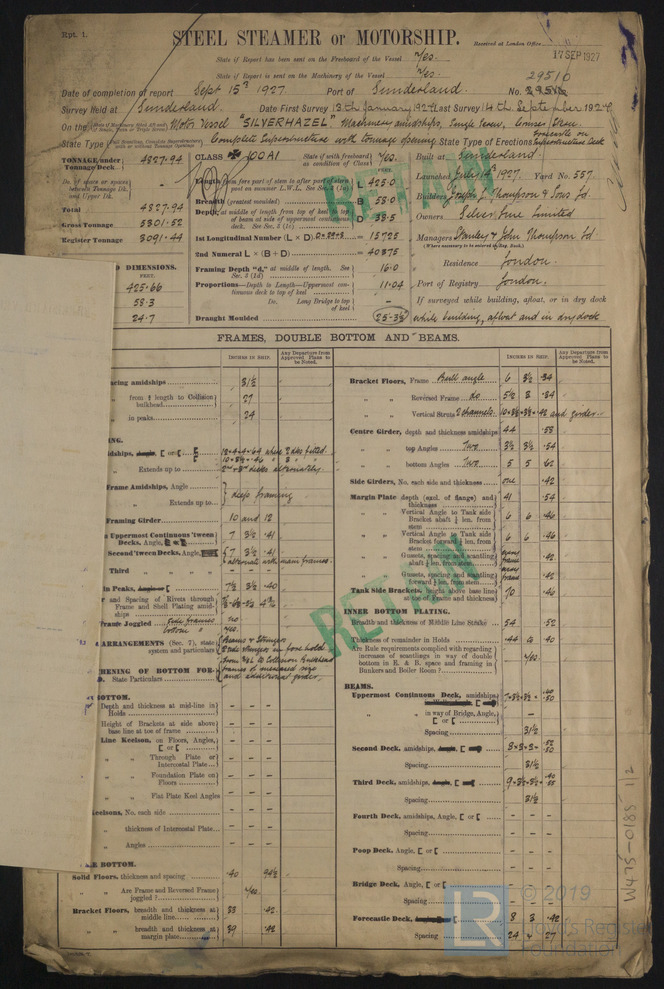 Rpt. 1.
STEEL STEAMER OR MOTORSHIP.
Received at London Office
17 SEP 1927
State if Report has been sent on the Freeboard of the Vessel Yes.
State if Report is sent on the Machinery of the Vessel Yes.
29510
Date of completion of report Sept 15th 1927 Port of Sunderland. No.
Survey held at Sunderland. Date First Survey 13th January 192 Last Survey 14th September 1927
On the Motor Vessel "SILVERHAZEL" Machinery amidships, Single Screw,
State Type Complete Superstructure with tonnage opening State Type of Erections Forecastle on Superstructure Deck
TONNAGE under Tonnage Deck 4827.94
CLASS 100A1 State if with freeboard as condition of Class Yes.
Built at Sunderland.
Launched July 14th 1927. Yard No. 557
Total 4827.94
Gross Tonnage 5301.52
Register Tonnage 3091.44
Length from fore part of stem to after part of post on summer L.W.L. See Sec. 3 (1a) L 425.0
Breadth (greatest moulded) B 58.0
Depth, at middle of length from top of keel to top of beam at side of uppermost continuous deck. See Sec. 3 (1c) D 38.5
1st Longitudinal Number (L × D) = 15725
2nd Numeral L × (B + D) = 40375
Framing Depth "d," at middle of length. See Sec. 3 (1d) 16.0
Proportions—Depth to Length—Uppermost continuous deck to top of keel 11.04
Do. Long Bridge to top of keel
Draught Moulded 25-3½
Builders Joseph L. Thompson & Sons Ld
Owners Silver Line Limited
Managers Stanley & John Thompson Ld
Residence London.
Port of Registry London.
If surveyed while building, afloat, or in dry dock
while building, afloat and in dry dock
DIMENSIONS.
FEET.
425.66
58.3
24.7
RETAIN
FRAMES, DOUBLE BOTTOM AND BEAMS.
INCHES IN SHIP.
Any Departure from Approved Plans to be Noted.
INCHES IN SHIP.
Any Departure from Approved Plans to be Noted.
acing amidships 31½
from ⅕ length to Collision bulkhead 27
in peaks 24
Extends up to 2nd & 3rd decks alternately
Frame Amidships, Angle
deep framing
Extends up to
Framing Girder 10 and 12
Uppermost Continuous 'tween Decks, Angle, 7 3½ .41
Second 'tween Decks, Angle, 7 3½ .41
alternate with main frames
Third
in Peaks, 7½ 3½ .40
and Spacing of Rivets through Frame and Shell Plating amidships
Frame Joggled side frames no
bottom " yes.
ARRANGEMENTS (Sec. 7), state system and particulars
Beams & Stringers
State Particulars
and additional girder.
BOTTOM.
Depth and thickness at mid-line in Holds
Height of Brackets at side above base line at toe of frame
Line Keelson, on Floors, Angles, [ or [
Through Plate or Intercostal Plate
Foundation Plate on Floors
Flat Plate Keel Angles
eelsons, No. each side
thickness of Intercostal Plate
Angles
LE BOTTOM.
Solid Floors, thickness and spacing .40 94½
Are Frame and Reversed Frame joggled? Yes
Bracket Floors, breadth and thickness at middle line 33 .42
breadth and thickness at margin plate 39 .42
Bracket Floors, Frame Bulb angle 6 3½ .34
Reversed Frame do 5½ 3 .34
Vertical Struts 2 channels.
Centre Girder, depth and thickness amidships 44 .53
top Angles Two 3½ 3½ .54
bottom Angles Two 5 5 .62
Side Girders, No. each side and thickness one .42
Margin Plate depth (excl. of flange) and thickness 41 .54
Vertical Angle to Tank side Bracket abaft ¼ len. from stem 6 6 .46
Vertical Angle to Tank side Bracket forward ¼ len. from stem 6 6 .46
Gussets, spacing and scantling abaft ¼ len. from stem every frame .42
Gussets, spacing and scantling forward ¼ len. from stem every frame .42
Tank Side Brackets, height above base line at toe of Frame and thickness 70 .46
INNER BOTTOM PLATING.
Breadth and thickness of Middle Line Strake 54 .52
Thickness of remainder in Holds .44 to .40
Are Rule requirements complied with regarding increases of scantlings in way of double bottom in E. & B. space and framing in Bunkers and Boiler Room? Yes
BEAMS.
Uppermost Continuous Deck, amidships
in way of Bridge, Angle, [ or [
Spacing 31½
Second Deck, amidships,
Spacing 31½
Third Deck, amidships,
Spacing 31½
Fourth Deck, amidships, Angle, [ or [
Spacing
Poop Deck, Angle, [ or [
Spacing
Bridge Deck, Angle, [ or [
Spacing
Forecastle Deck, 8 3 .42
Spacing 24 & 27
RETAIN
W475-0185 1/2
LR
© 2019
Lloyd's Register
Foundation